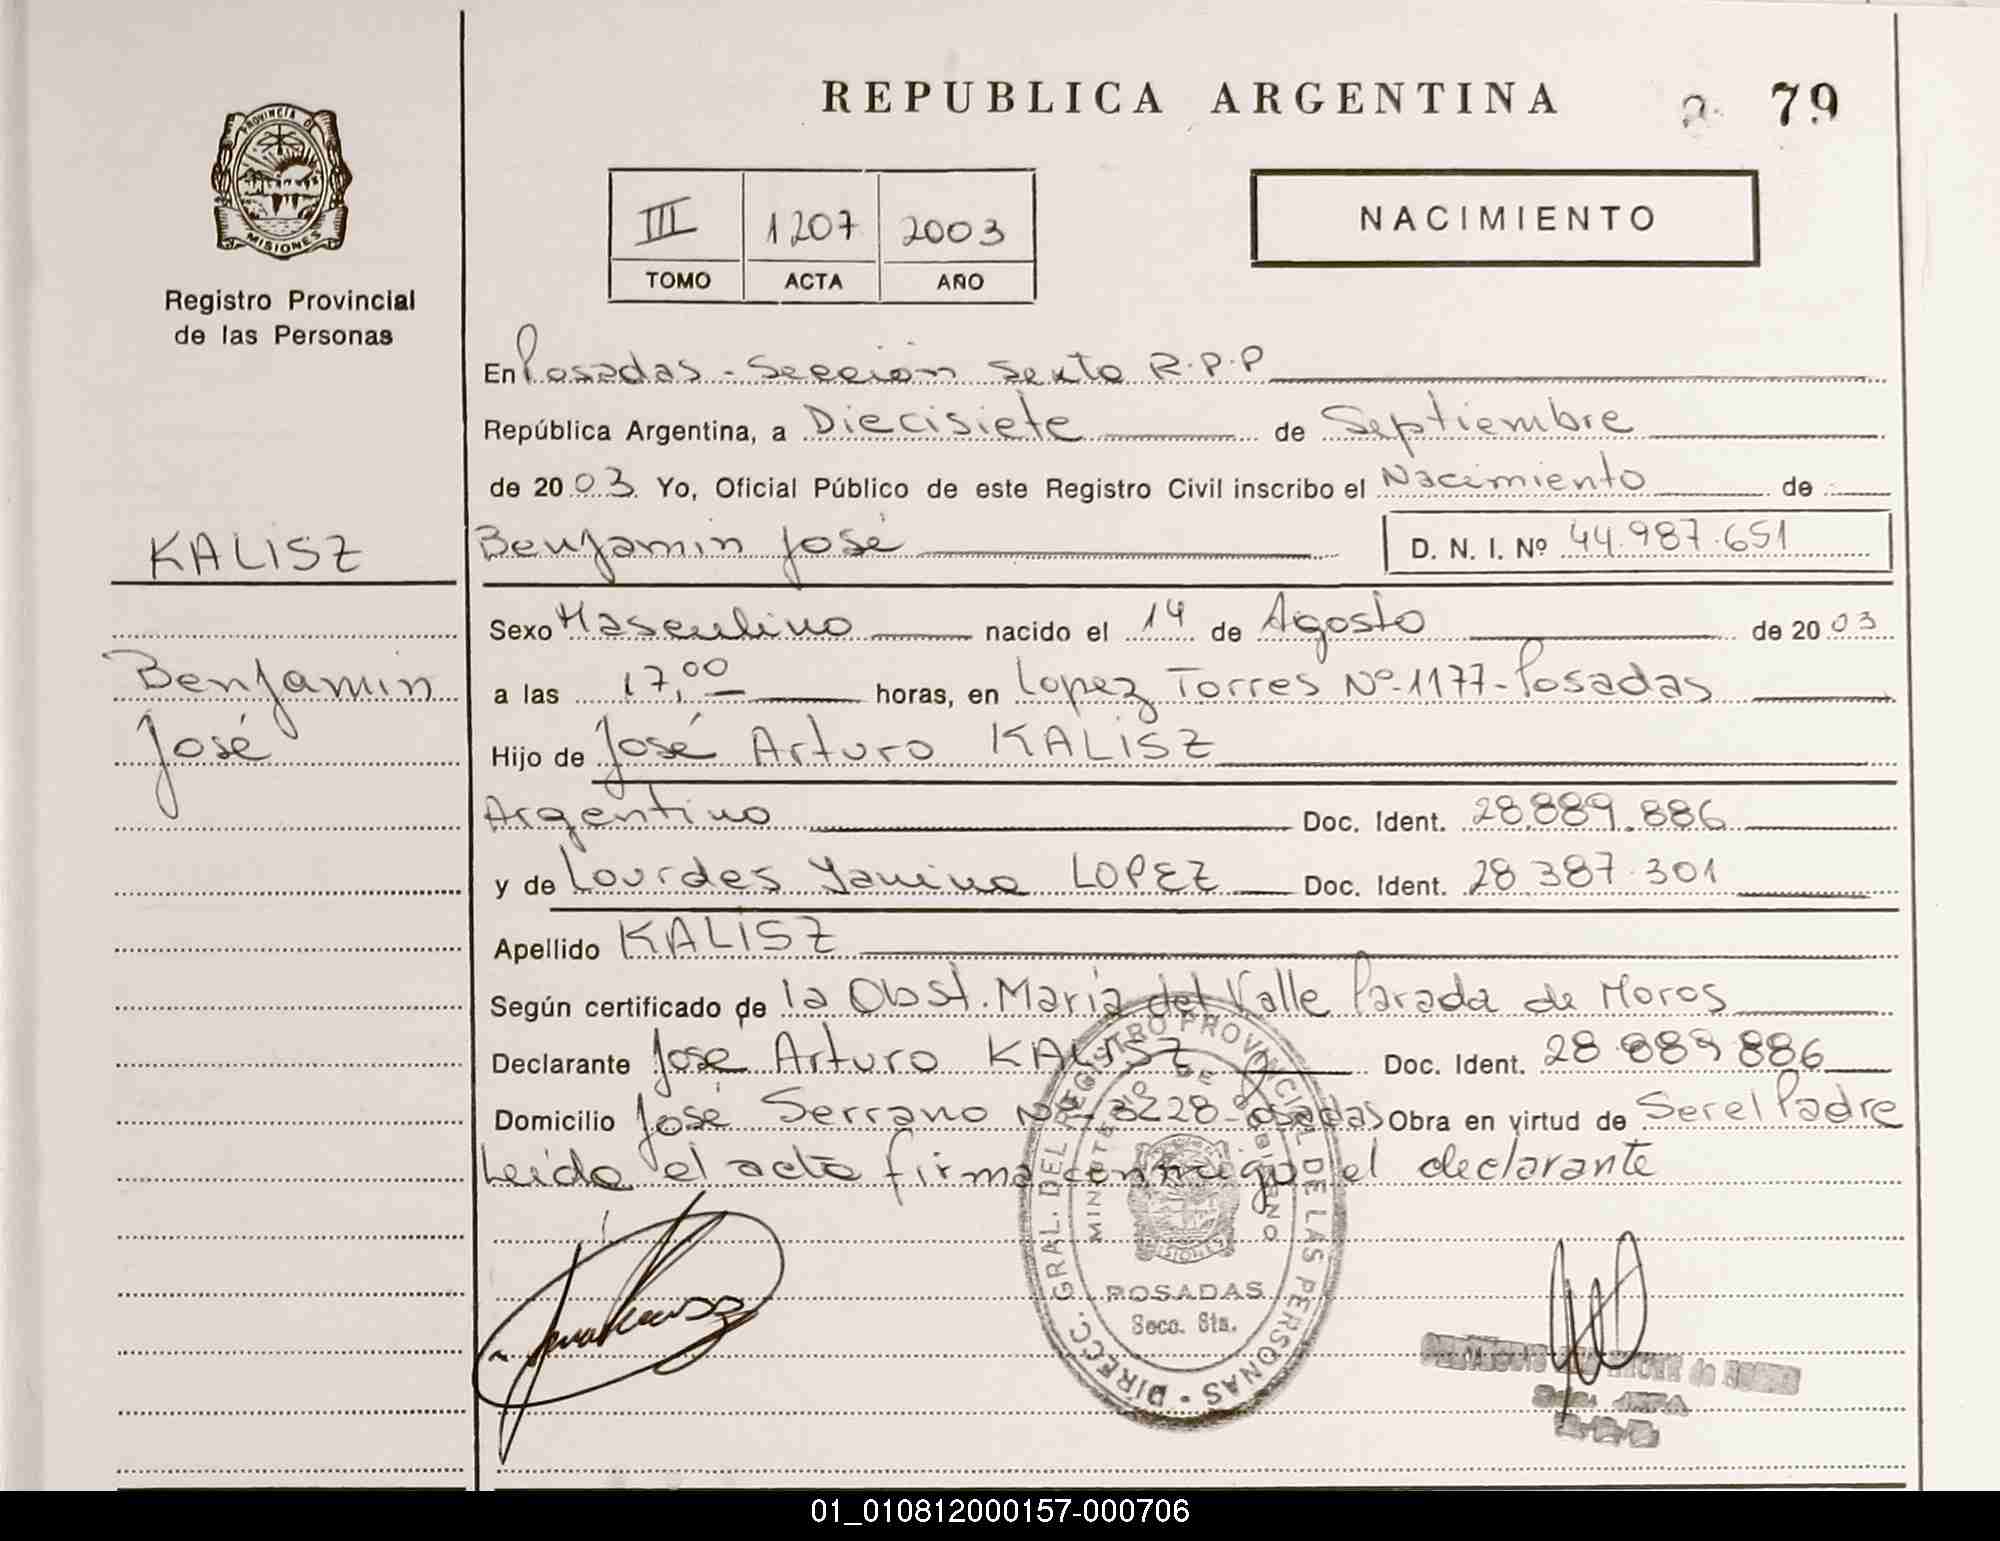 REPUBLICA ARGENTINA
79
PROVINCIA DE
MISIONES
Registro Provincial
de las Personas
III 1207 2003
TOMO ACTA AÑO
NACIMIENTO
En Posadas - Sección Sexta R.P.P
República Argentina, a Diecisiete de Septiembre
de 2003. Yo, Oficial Público de este Registro Civil inscribo el Nacimiento de
KALISZ
Benjamin José D. N. I. Nº 44.987.651
Sexo Masculino nacido el 14 de Agosto de 2003
Benjamin
a las 17,00 horas, en Lopez Torres Nº-1177-Posadas
José
Hijo de José Arturo KALISZ
Argentino Doc. Ident. 28.889.886
y de Lourdes Yanina LOPEZ Doc. Ident. 28.387.301
Apellido KALISZ
Según certificado de la Obst. María del Valle Parada de Moros
Declarante José Arturo KALISZ Doc. Ident. 28.889.886
Domicilio José Serrano Nº-3228-Posadas Obra en virtud de Ser el Padre
Leída el acta firma conmigo el declarante
DIRECC. GRAL. DEL REGISTRO PROVINCIAL DE LAS PERSONAS
MINISTERIO DE GOBIERNO
MISIONES
POSADAS
Secc. 6ta.
01_010812000157-000706